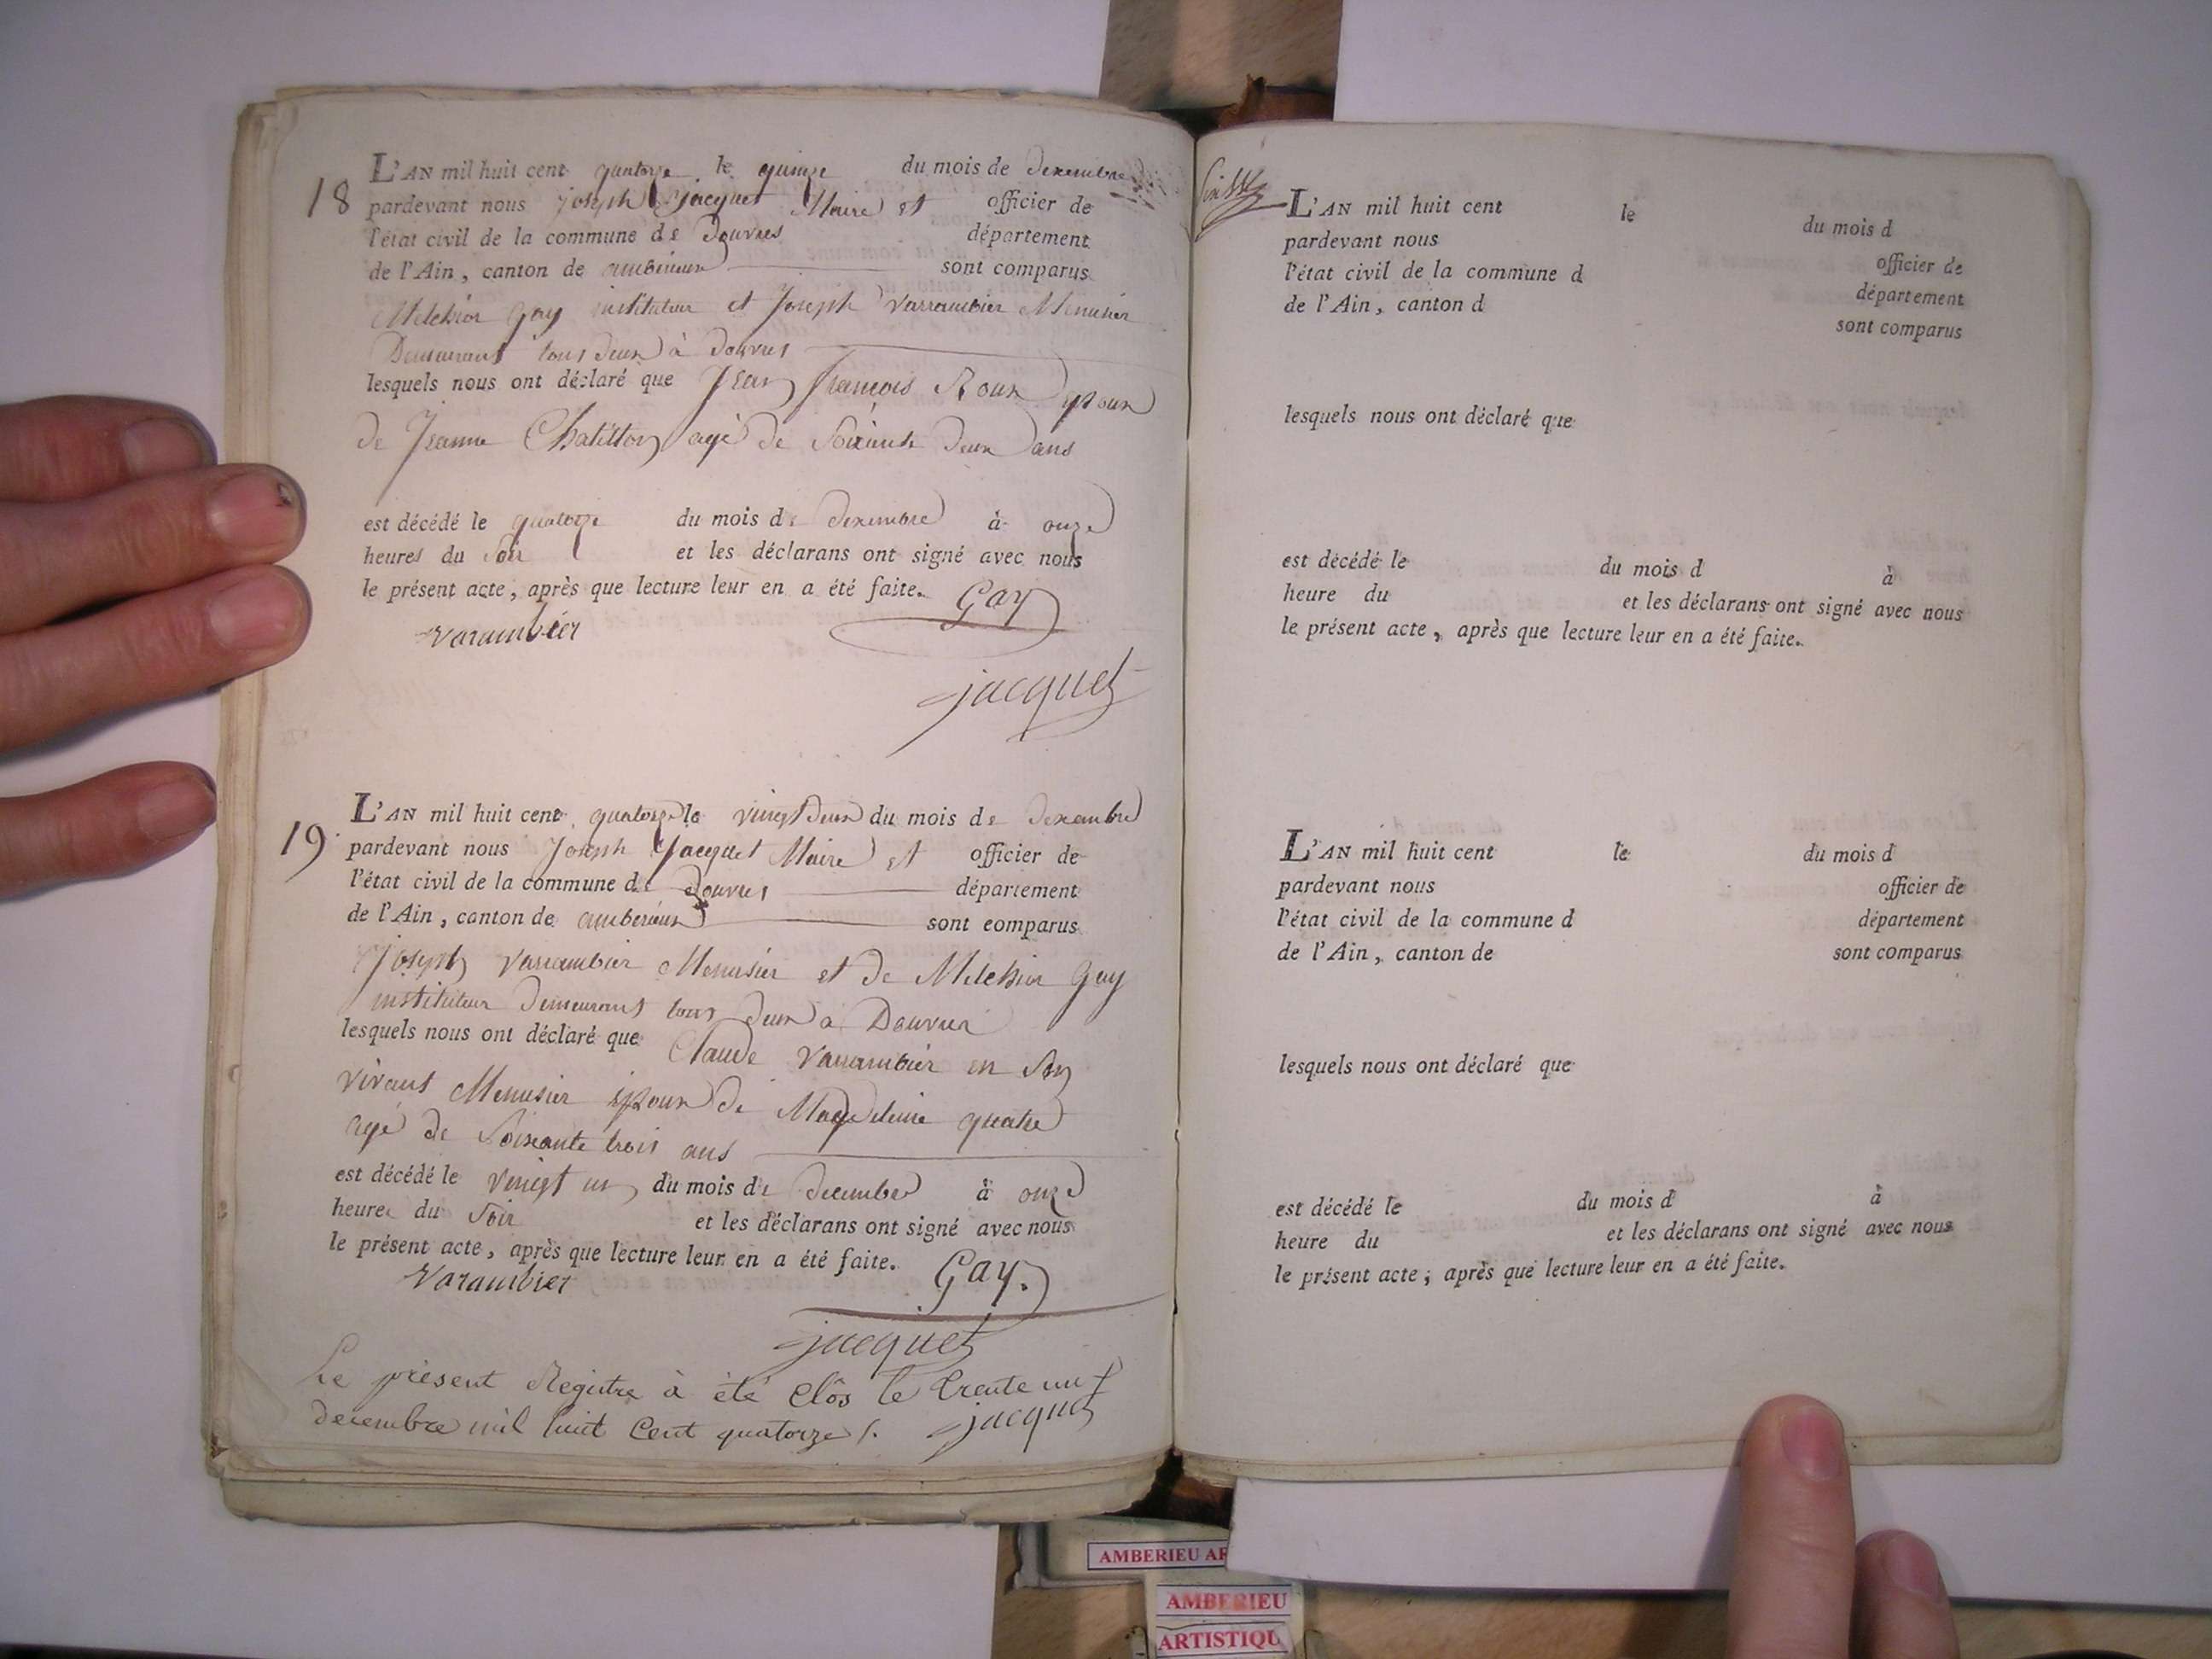 18
L'AN mil huit cent quatorze le quinze du mois de decembre
pardevant nous joseph Jacquet Maire et officier de
l'état civil de la commune de Douvres département
de l'Ain, canton de amberieux sont comparus
Melchior Gay instituteur et Joseph Varrambier Menusier
Demeurant tous deux à douvres
lesquels nous ont déclaré que Jean françois Roux epoux
de Jeanne Chatillon agé de Soixante deux ans
est décédé le quatorze du mois de decembre à onze
heures du soir et les déclarans ont signé avec nous
le présent acte, après que lecture leur en a été faite. Gay
Varambier
jacquet
19
L'AN mil huit cent quatorze le vingt deux du mois de decembre
pardevant nous Joseph Jacquet Maire et officier de
l'état civil de la commune de Douvres département
de l'Ain, canton de amberieux sont comparus
joseph Varrambier Menusier et de Melchior Gay
instituteur demeurant tous deux à Douvres
lesquels nous ont déclaré que Claude Varrambier en son
vivant Menusier epoux de Magdeleine quatre
agé de Soixante trois ans
est décédé le vingt un du mois de decembre à onze
heure du Soir et les déclarans ont signé avec nous
le présent acte, après que lecture leur en a été faite. Gay.
Varambier
jacquet
Le présent Registre à été clôs le trente un
decembre mil huit Cent quatorze /. jacquet
L'AN mil huit cent le du mois d
pardevant nous officier de
l'état civil de la commune d département
de l'Ain, canton d sont comparus
lesquels nous ont déclaré que
est décédé le du mois d à
heure du et les déclarans ont signé avec nous
le présent acte, après que lecture leur en a été faite.
L'AN mil huit cent le du mois d
pardevant nous officier de
l'état civil de la commune d département
de l'Ain, canton de sont comparus
lesquels nous ont déclaré que
est décédé le du mois d à
heure du et les déclarans ont signé avec nous
le présent acte; après que lecture leur en a été faite.
AMBERIEU AR
AMBERIEU
ARTISTIQU